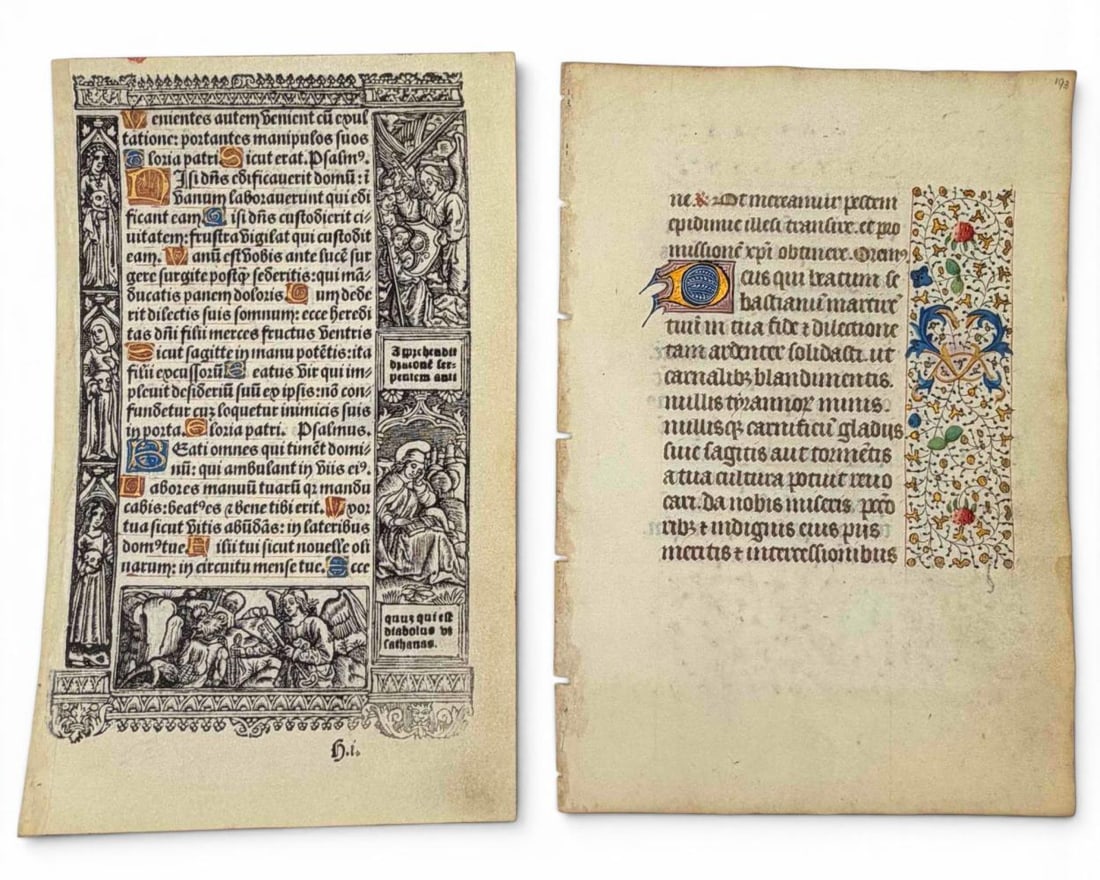 Venientes autem venient cū exul
tatione: portantes manipulos suos
Gloria patri Sicut erat. Psalmꝰ.
NIsi dn̄s edificauerit domū: ī
vanum laborauerunt qui edi
ficant eam Nisi dn̄s custodierit ci-
uitatem: frustra vigilat qui custodit
eam. Vanū est vobis ante lucē sur
gere surgite postqͣ sederitis: qui mā-
ducatis panem doloris. Cum dede
rit dilectis suis somnum: ecce heredi
tas dn̄i filii merces fructus ventris
Sicut sagitte in manu potētis: ita
filii excussorū Beatus vir qui im-
pleuit desideriū suū ex ipsis: nō con-
fundetur cuꝫ loquetur inimicis suis
in porta. Gloria patri. Psalmus.
BEati omnes qui timēt domi-
nū: qui ambulant in viis eiꝰ.
Labores manuū tuarū qr mandu
cabis: beatꝰ es & bene tibi erit. Vxor
tua sicut vitis abūdās: in lateribus
domꝰ tue. Filii tui sicut nouelle oli
uarum: in circuitu mense tue. Ecce
Apprehendit
draconē ser-
pentem anti
quuꝫ qui est
diabolus &
sathanas.
H.i.
193
ne. ℟. Ut mereamur pestem
epidimie illesi transire. et pro
missionē xp̄i obtinere. Oremꝰ
Deus qui beatum se
bastianū martirē
tuū in tua fide & dilectione
tam ardenter solidasti. ut
carnalibꝫ blandimentis.
nullis tyrannoꝝ minis.
nullisqꝫ carnificū gladiis
siue sagitis aut tormētis
a tua cultura potuit reuo
cari. Da nobis miseris. pec̄o
ribꝫ & indignis eius piis
meritis & intercessionibus